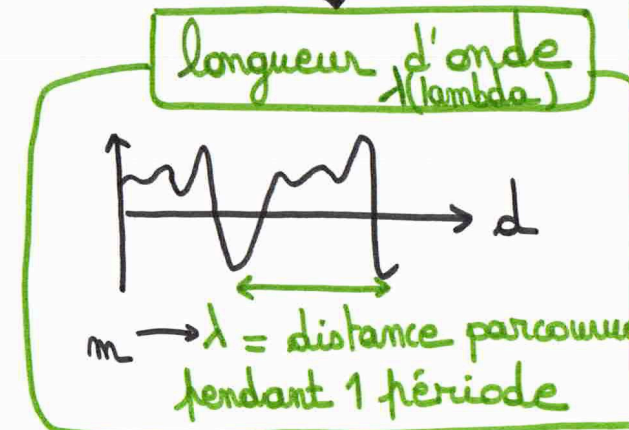 longueur d'onde
λ(lambda)
d
m → λ = distance parcourue
pendant 1 période